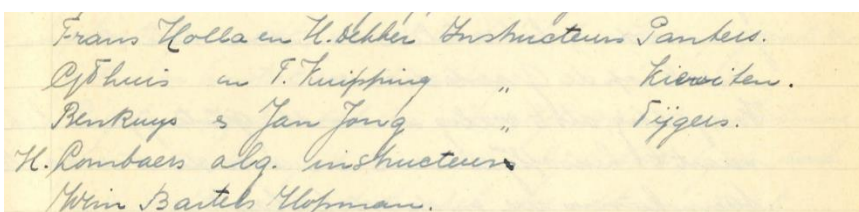 Frans Holla en H. Dekker Instructeurs Panters.
en T. Kuipping " Kieviten.
Benkuys & Jan Jong " Tijgers.
H. Lombaers alg. instructeurs
Wim Bartels Hopman.